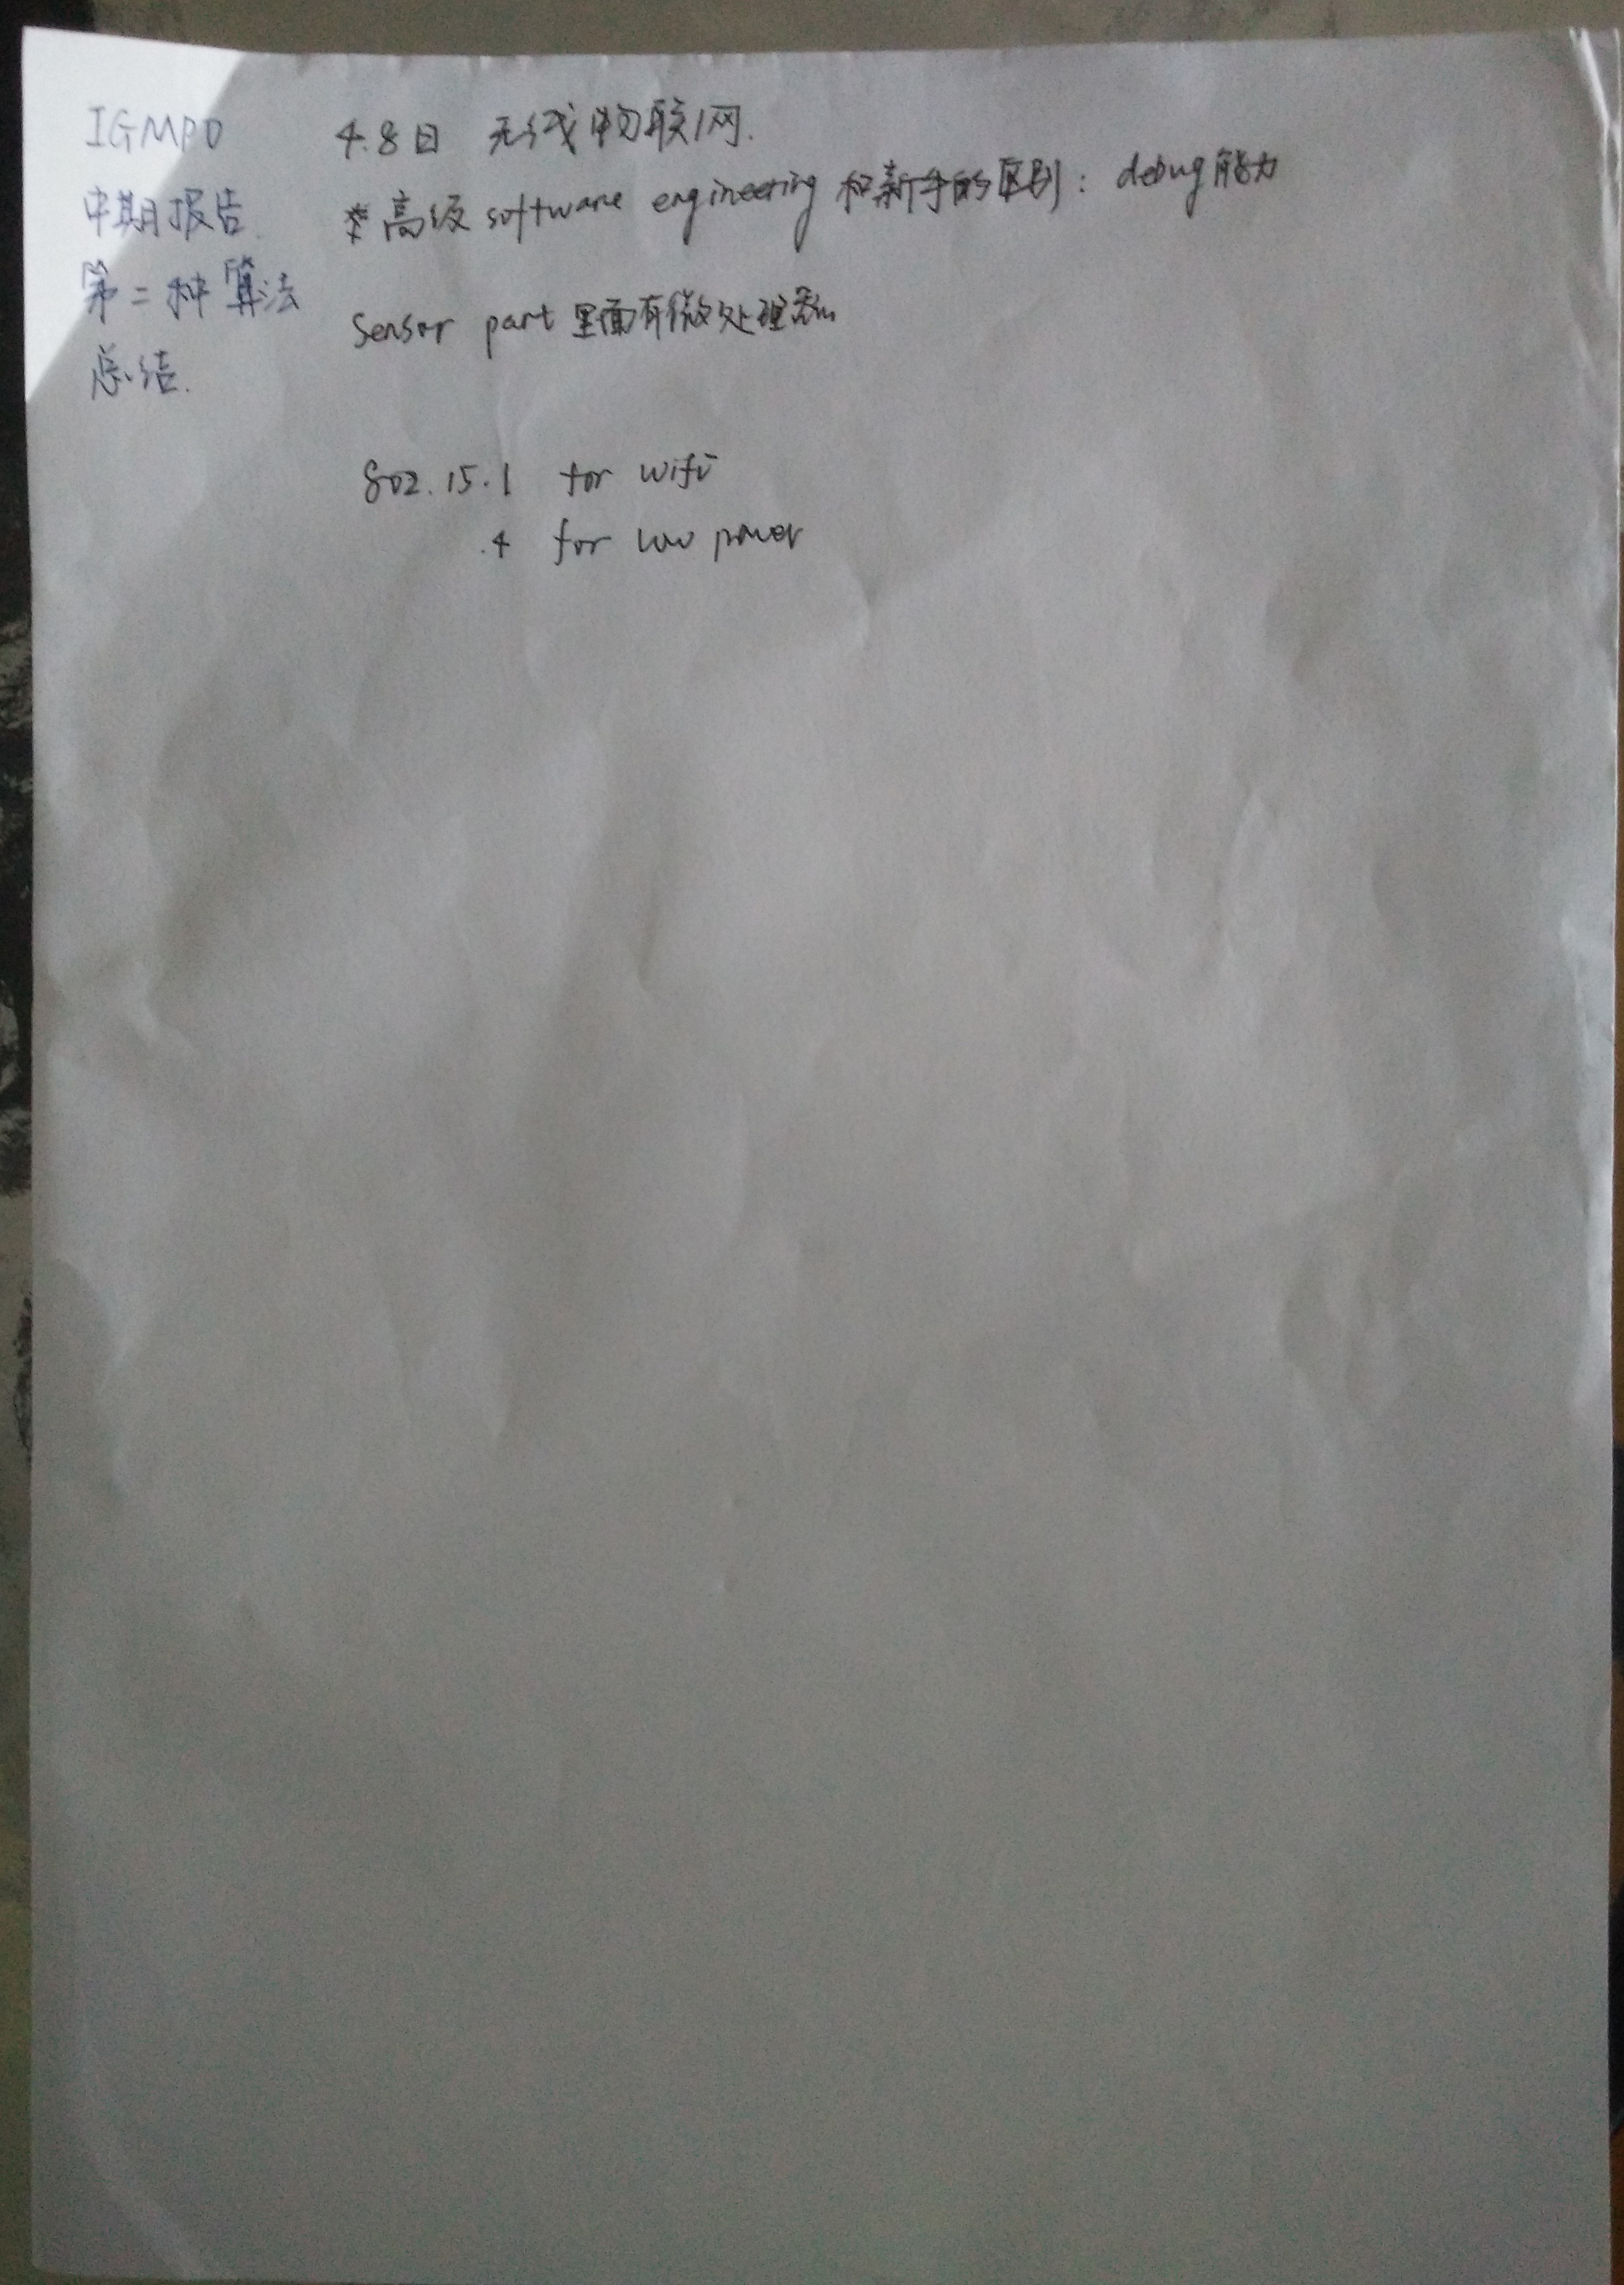 IGMPO
中期报告
第二种算法
总结.
4.8日 无线物联网.
* 高级 software engineering 和新手的区别: debug能力
Sensor part 里面有微处理器
802.15.1 for wifi
.4 for low power